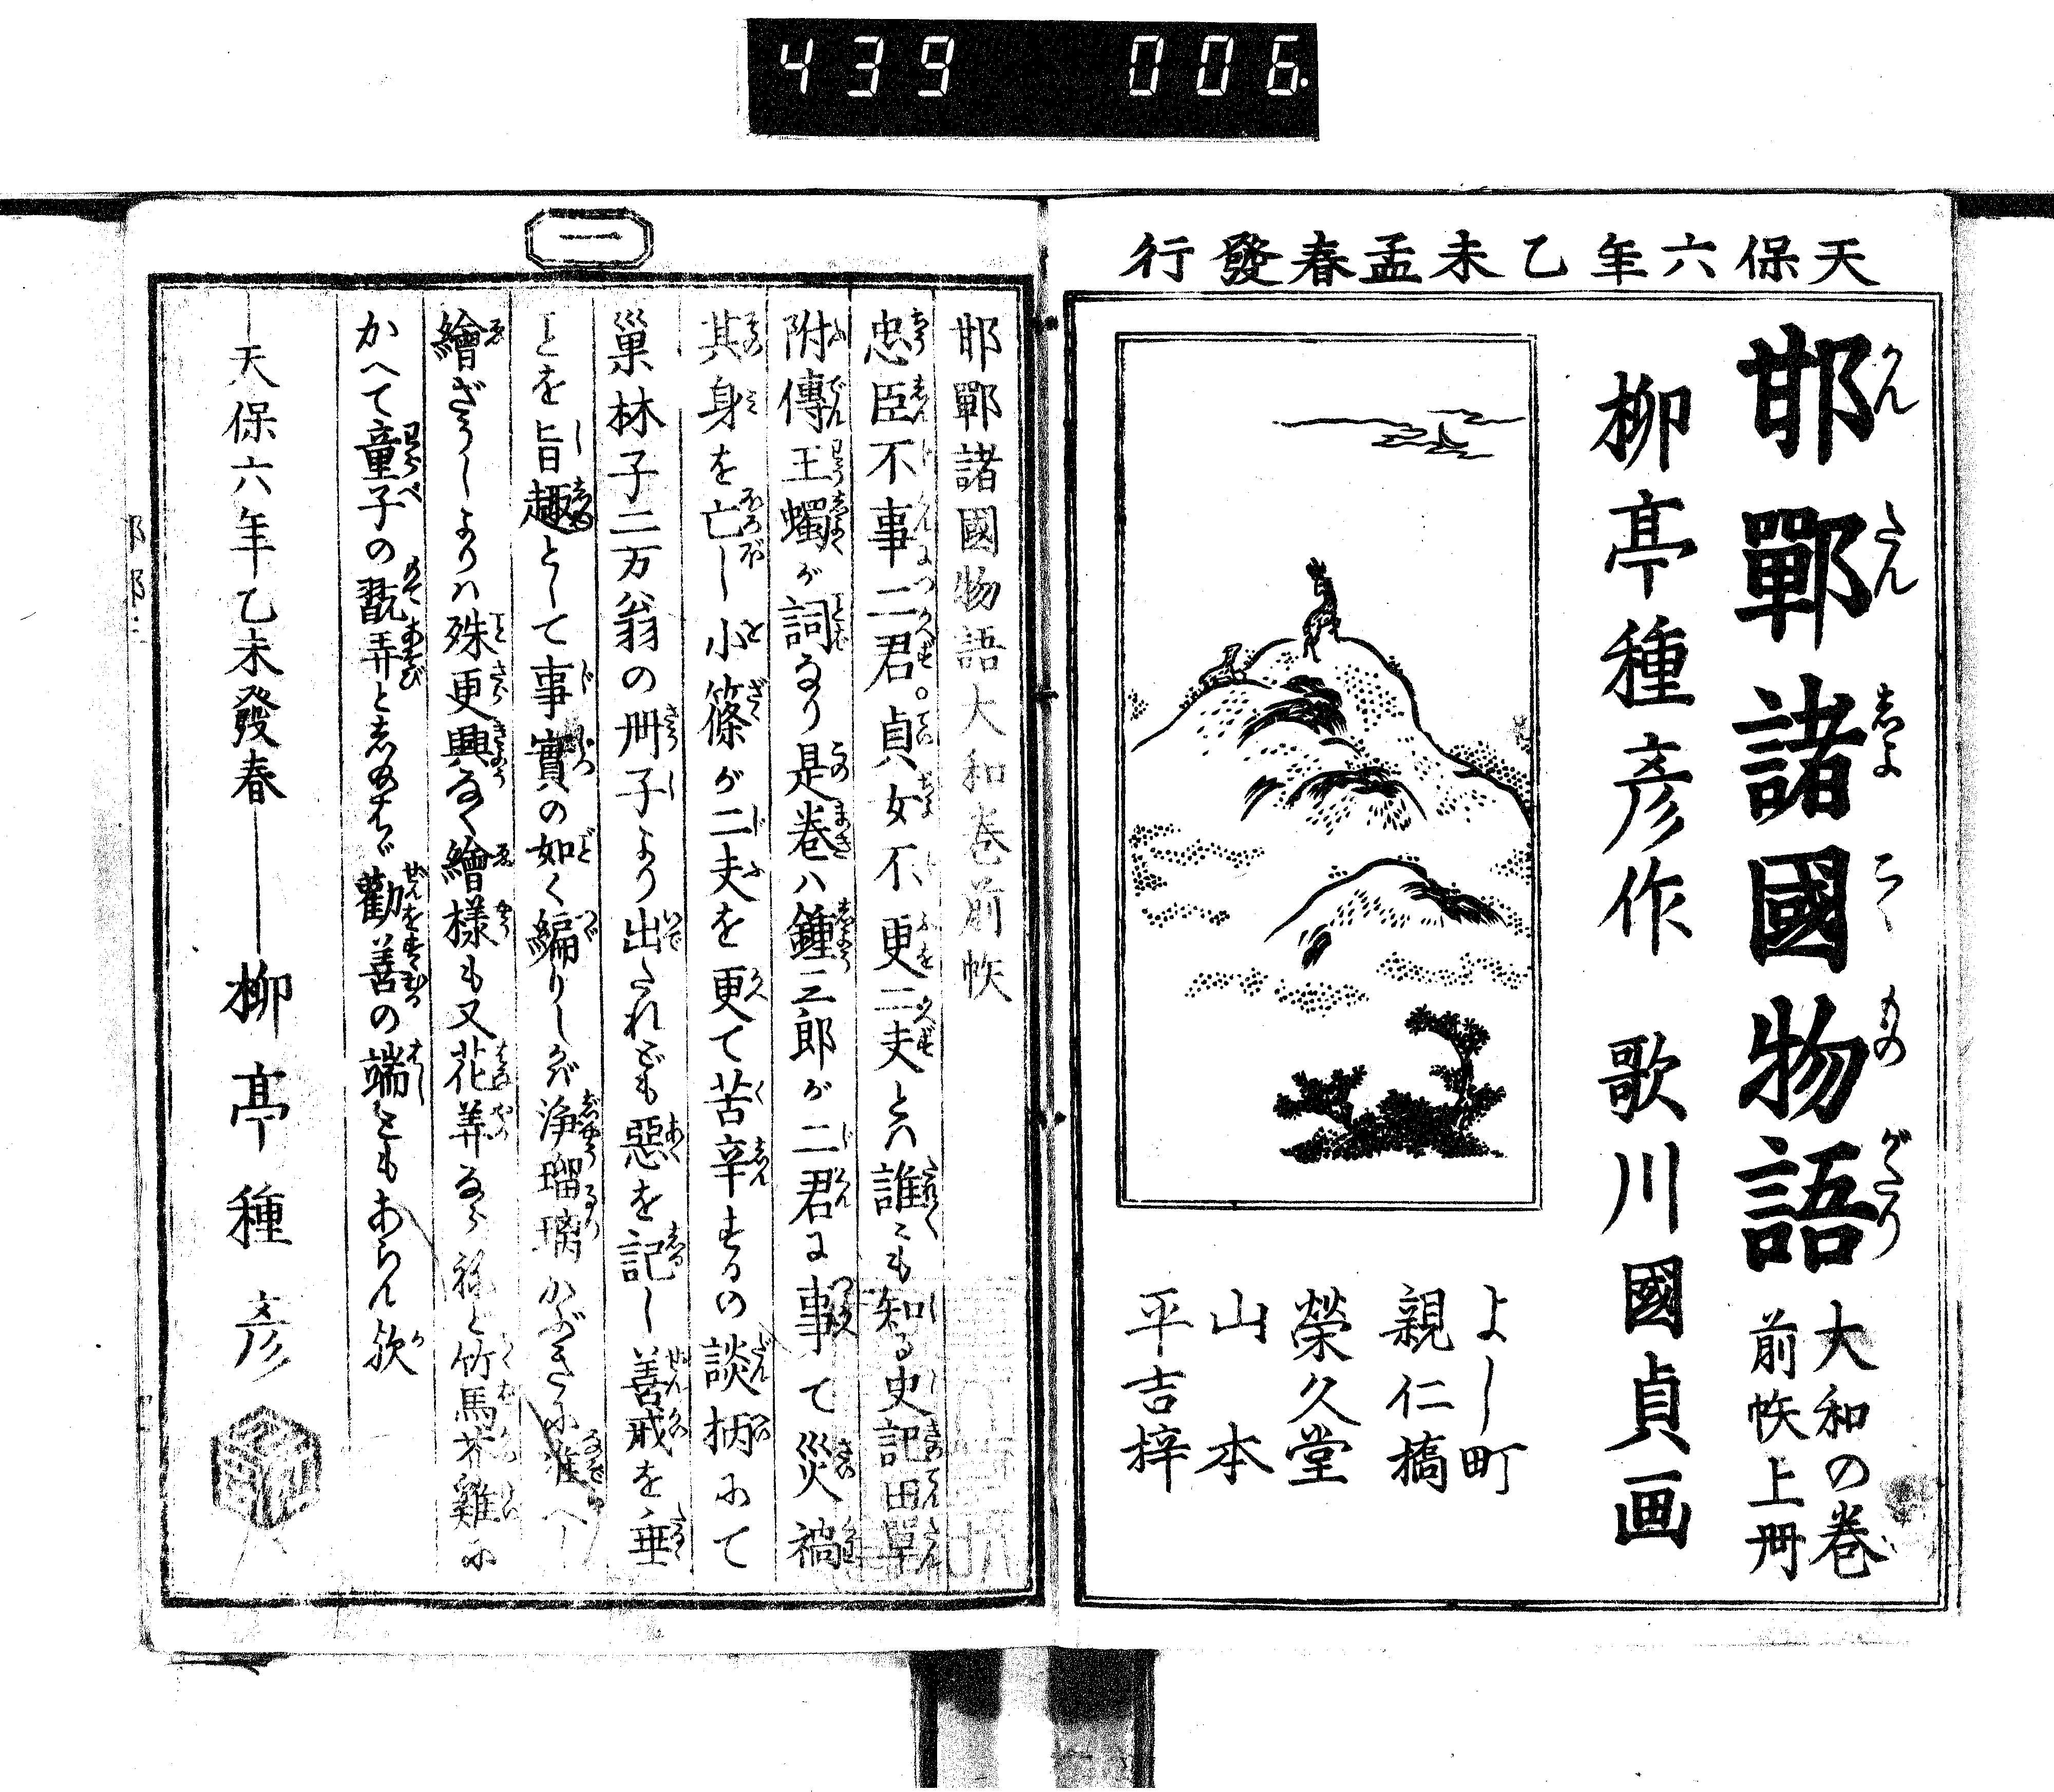 439 006.
天保六年乙未孟春發行
邯鄲諸國物語 大和の巻
前帙上冊
柳亭種彦作 歌川國貞画
よし町
親仁橋
榮久堂
山本
平吉梓
一
邯鄲諸國物語大和巻前帙
忠臣不事二君。貞女不更二夫とハ誰〻も知る史記田單
附傳王蠋が詞なり是巻ハ鍾三郎が二君に事て災禍
其身を亡し小篠が二夫を更て苦辛するの談柄にて
巣林子二万翁の冊子より出たれども惡を記し善戒を垂
ことを旨趣として事實の如く編りしが浄瑠璃かぶきに准へし
繪ざうしよりハ殊更興なく繪様も又花美なら ねど竹馬芥雞に
かへて童子の翫弄となしめさバ勸善の端ともあらん欤
天保六年乙未發春 柳亭種彦